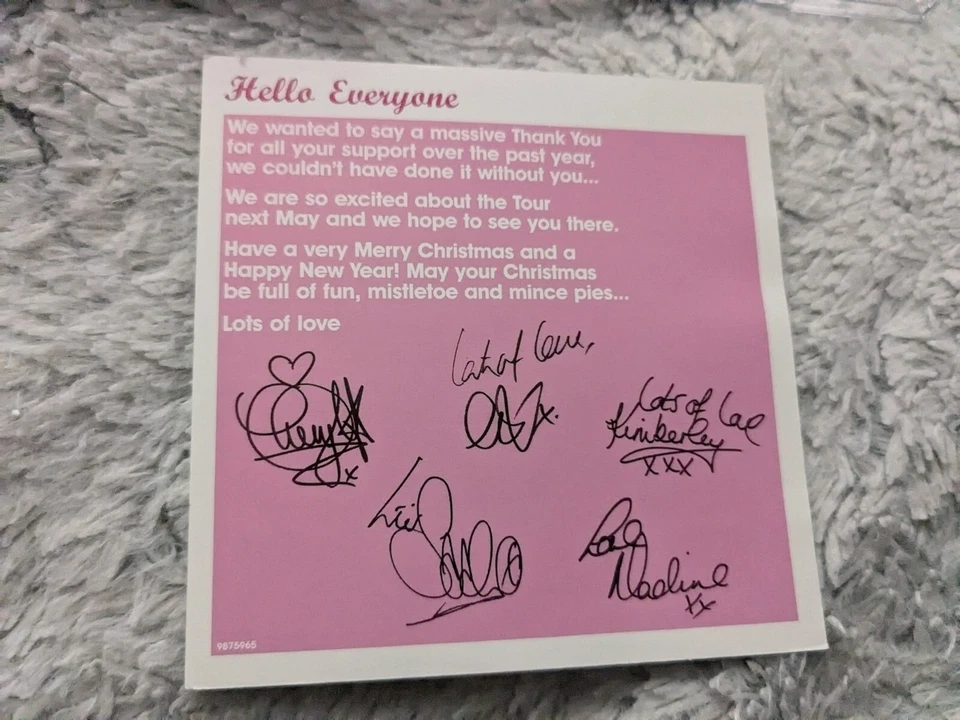 Hello Everyone
We wanted to say a massive Thank You
for all your support over the past year,
we couldn't have done it without you...
We are so excited about the Tour
next May and we hope to see you there.
Have a very Merry Christmas and a
Happy New Year! May your Christmas
be full of fun, mistletoe and mince pies...
Lots of love
Lots of love,
Cheryl x
Lots of love
Kimberley
xxx
Love
Nadine
xx
9875965